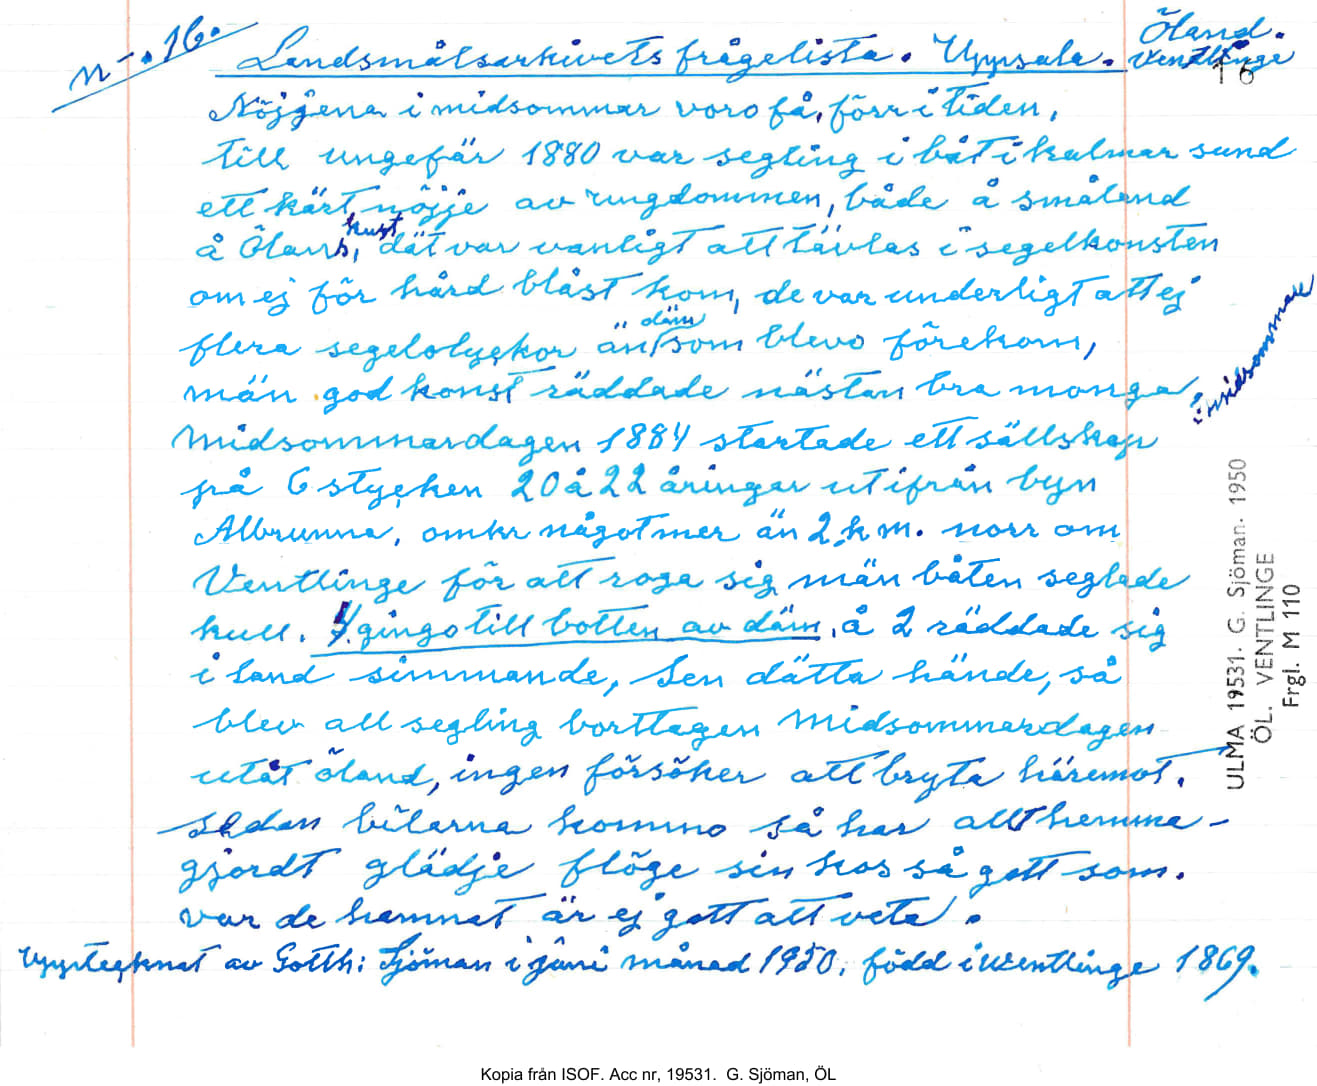 n-. 16.
Landsmålsarkivets frågelista. Uppsala.
Öland.
Ventlinge
16
Nöjjena i midsommar voro få, förr i tiden,
till ungefär 1880 var segling i båt i kalmar sund
ett kärt nöjje av ungdommen, både å småland
å Ölans kust, dät var vanligt att tävlas i segelkonsten
om ej för hård blåst kom, de var underligt att ej
flera segelolyckor än däm som blevo förekom,
män god konst räddade nästan bra monga
i midsommare
Midsommardagen 1884 startade ett sällskap
på 6 stycken 20 å 22 åringar utifrån byn
Albrunna, omkr något mer än 2 k m. norr om
Ventlinge för att roga sig män båten seglade
kull. 4 gingo till botten av däm, å 2 räddade sig
i land simmande, Sen dätta hände, så
blev all segling borttagen Midsommardagen
utåt öland, ingen försöker att bryta häremot.
sedan bilarna kommo så har allt hemma-
gjordt glädje flöge sin kos så gott som.
var de hamnat är ej gott att veta.
Upptecknat av Gotth: Sjöman i juni månad 1950. född i Ventlinge 1869.
ULMA 19531. G. Sjöman. 1950
ÖL. VENTLINGE
Frgl. M 110
Kopia från ISOF. Acc nr, 19531. G. Sjöman, ÖL